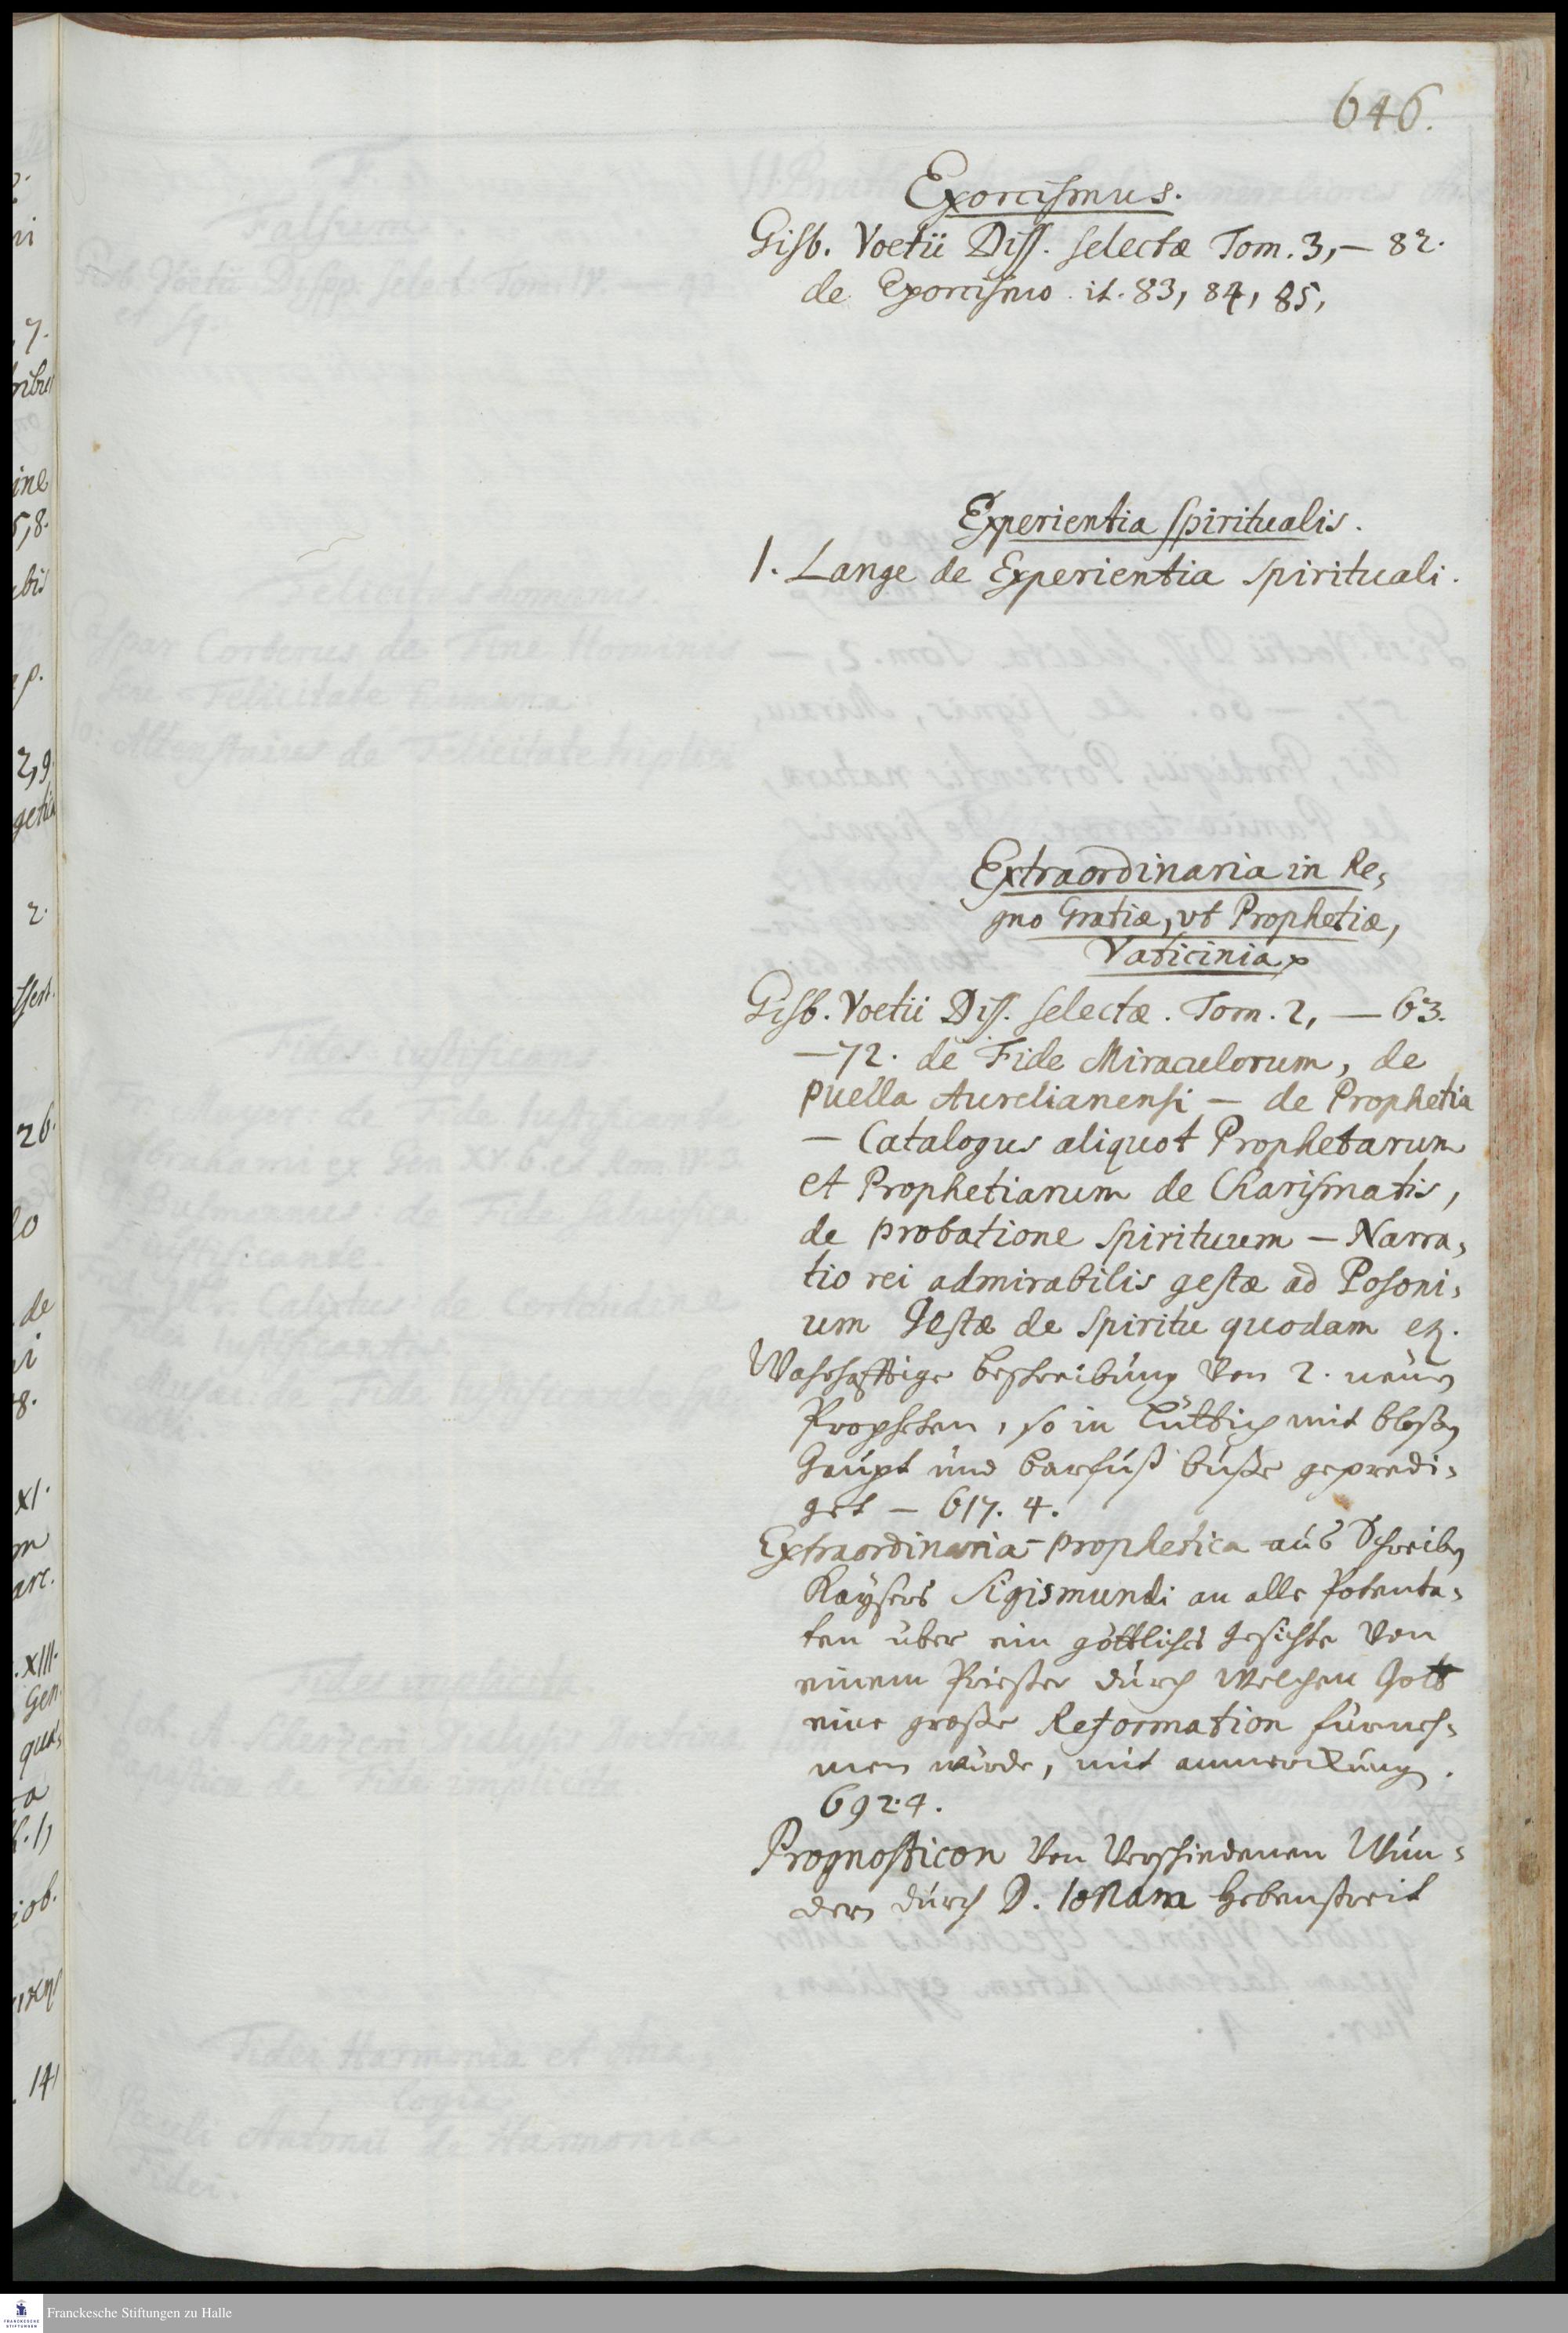 646.
Exorcismus.
Gisb. Voetii Diss. selectæ Tom. 3, — 82.
de Exorcismo. it. 83, 84, 85,
Experientia spiritualis.
1. Lange de Experientia spirituali.
Extraordinaria in Re-
gno Gratiæ, vt Prophetiæ,
Vaticinia
Gisb. Voetii Diss. selectæ. Tom. 2, — 63.
— 72. de Fide Miraculorum, de
puella Aurelianensi — de Prophetia
— Catalogus aliquot Prophetarum
et Prophetiarum de Charismatis,
de probatione spirituum — Narra-
tio rei admirabilis gestæ ad Posoni-
um gestæ de spiritu quodam
Wahrhafftige Beschreibung von 2. neuen
Propheten, so in Lüttich mit bloßen
Haupt und barfuß buße gepredi-
get — 617. 4.
Extraordinaria-prophetica aus Schreiben
Kaysers Sigismundi an alle Potenta-
ten über ein göttliches Gesichte von
einem Priester durch welchen Gott
eine große Reformation fürneh-
men würde, mit anmerckung.
692.4.
Prognosticon von verschiedenen Wun-
dern durch D. Ionam Hebenstreit
Franckesche Stiftungen zu Halle
FRANCKESCHE
STIFTUNGEN